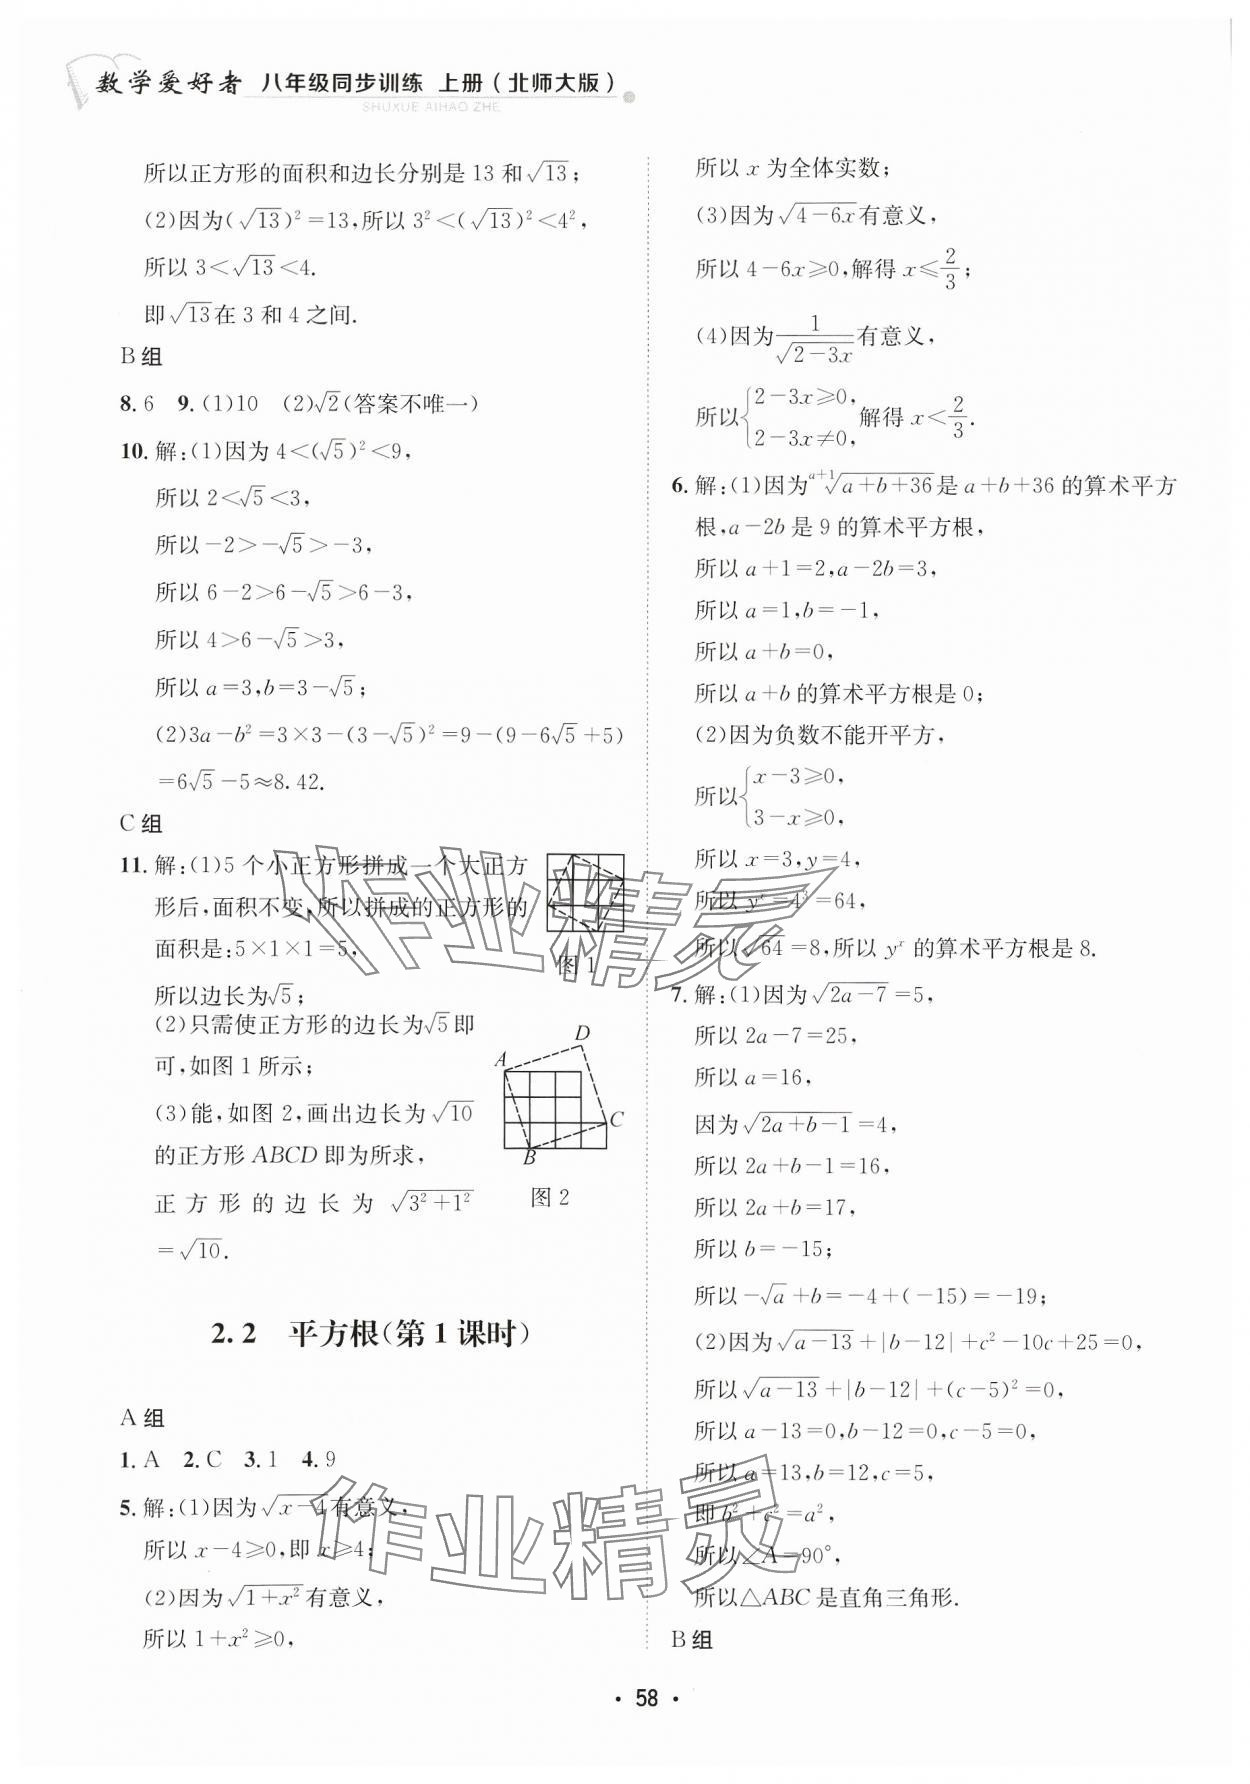 数学爱好者 八年级同步训练 上册(北师大版)
SHUXUE AIHAO ZHE
所以正方形的面积和边长分别是 13 和√13;
(2)因为(√13)²=13,所以 3²<(√13)²<4²,
所以 3<√13<4.
即√13在 3 和 4 之间.
B 组
8. 6 9. (1)10 (2)√2(答案不唯一)
10. 解:(1)因为 4<(√5)²<9,
所以 2<√5<3,
所以-2>-√5>-3,
所以 6-2>6-√5>6-3,
所以 4>6-√5>3,
所以 a=3,b=3-√5;
(2)3a-b²=3×3-(3-√5)²=9-(9-6√5+5)
=6√5-5≈8.42.
C 组
11. 解:(1)5 个小正方形拼成一个大正方
形后,面积不变,所以拼成的正方形的
面积是:5×1×1=5,
图 1
所以边长为√5;
(2)只需使正方形的边长为√5即
可,如图 1 所示;
(3)能,如图 2,画出边长为√10
的正方形 ABCD 即为所求,
正方形的边长为 √(3²+1²)
=√10.
A
D
C
B
图 2
2.2 平方根(第 1 课时)
A 组
1. A 2. C 3. 1 4. 9
5. 解:(1)因为√(x-4)有意义,
所以 x-4≥0,即 x≥4;
(2)因为√(1+x²)有意义,
所以 1+x²≥0,
所以 x 为全体实数;
(3)因为√(4-6x)有意义,
所以 4-6x≥0,解得 x≤2/3;
(4)因为1/√(2-3x)有意义,
所以{2-3x≥0, 2-3x≠0, 解得 x<2/3.
6. 解:(1)因为ᵃ⁺¹√(a+b+36)是 a+b+36 的算术平方
根,a-2b 是 9 的算术平方根,
所以 a+1=2,a-2b=3,
所以 a=1,b=-1,
所以 a+b=0,
所以 a+b 的算术平方根是 0;
(2)因为负数不能开平方,
所以{x-3≥0, 3-x≥0,
所以 x=3,y=4,
所以 yˣ=4³=64,
所以√64=8,所以 yˣ 的算术平方根是 8.
7. 解:(1)因为√(2a-7)=5,
所以 2a-7=25,
所以 a=16,
因为√(2a+b-1)=4,
所以 2a+b-1=16,
所以 2a+b=17,
所以 b=-15;
所以-√a+b=-4+(-15)=-19;
(2)因为√(a-13)+|b-12|+c²-10c+25=0,
所以√(a-13)+|b-12|+(c-5)²=0,
所以 a-13=0,b-12=0,c-5=0,
所以 a=13,b=12,c=5,
即 b²+c²=a²,
所以∠A=90°,
所以△ABC 是直角三角形.
B 组
· 58 ·
作业精灵
作业精灵